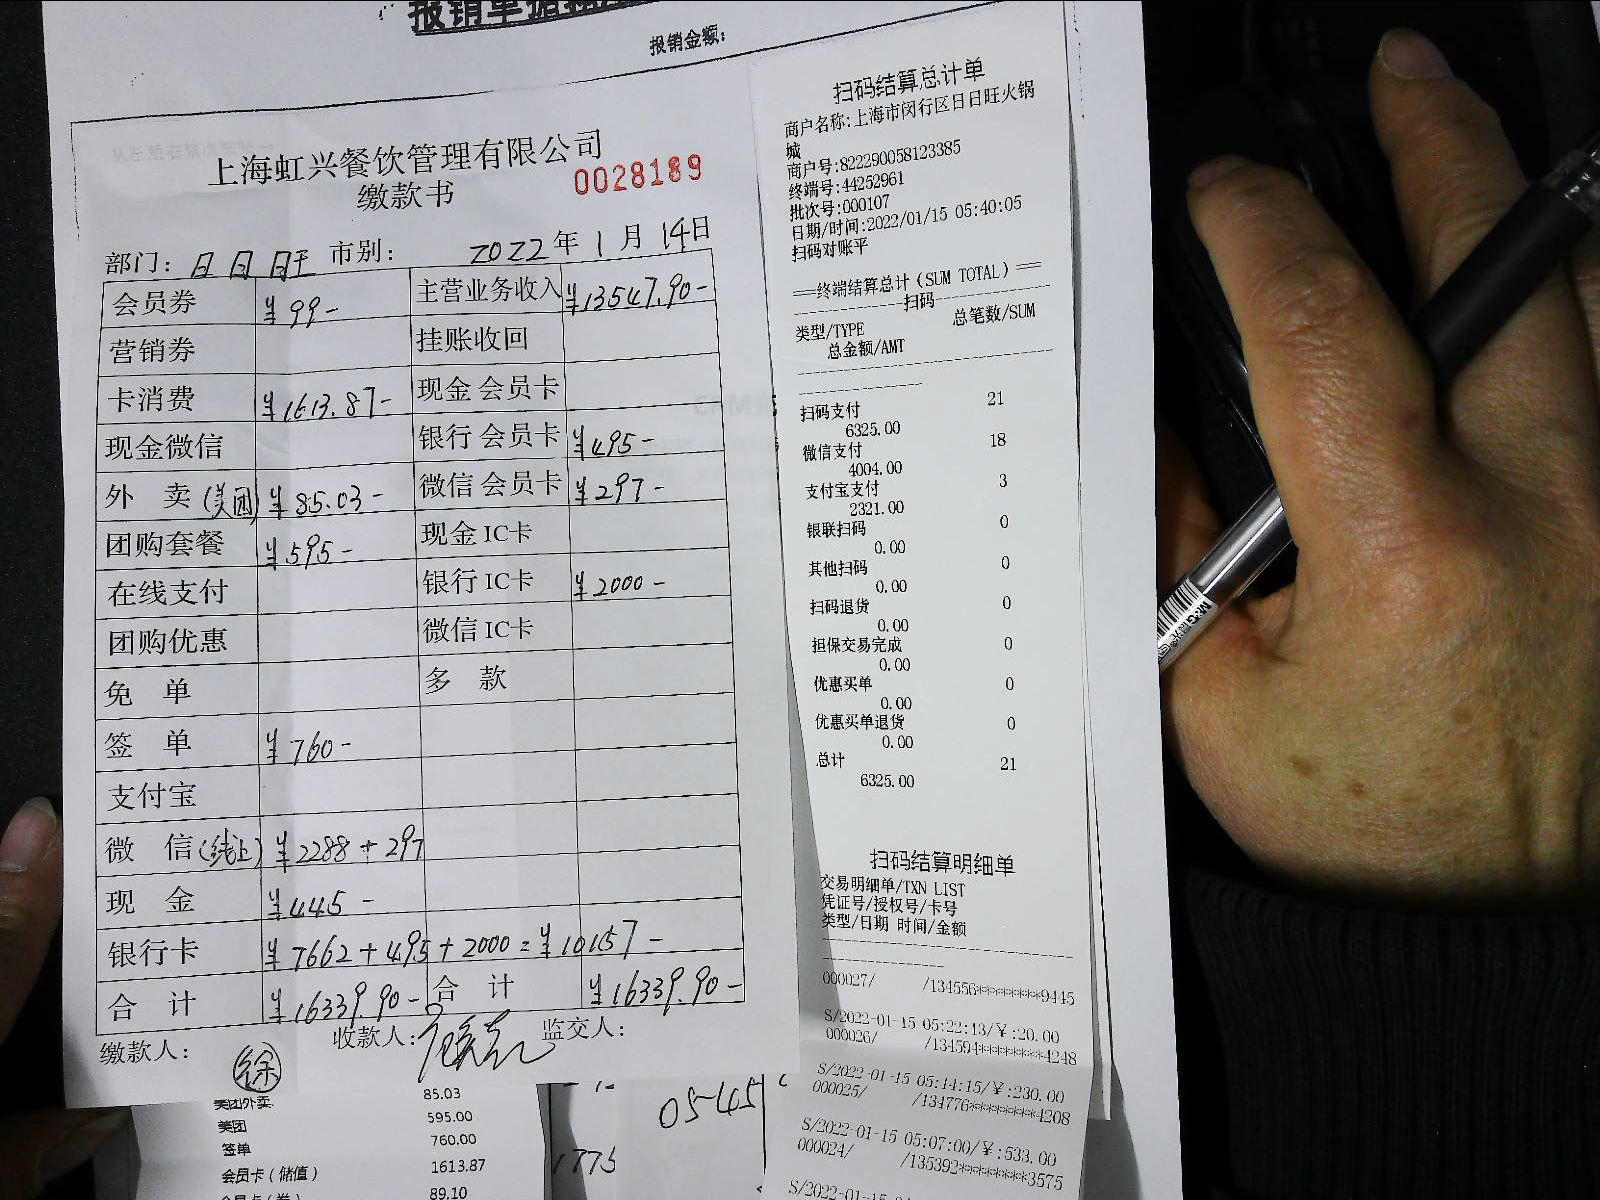 报销金额：
上海虹兴餐饮管理有限公司
缴款书
0028189
部门： 日日旺 市别： 2022年1月14日
会员券 ¥99- 主营业务收入 ¥13547.90-
营销券 挂账收回
卡消费 ¥1613.87- 现金会员卡
现金微信 银行会员卡 ¥495-
外 卖(美团) ¥85.03- 微信会员卡 ¥297-
团购套餐 ¥595- 现金IC卡
在线支付 银行IC卡 ¥2000-
团购优惠 微信IC卡
免 单 多 款
签 单 ¥760-
支付宝
微 信(线上) ¥2288+297
现 金 ¥445-
银行卡 ¥7662+495+2000=¥10157-
合 计 ¥16339.90- 合 计 ¥16339.90-
缴款人： 徐 收款人： 监交人：
美团外卖 85.03
美团 595.00
签单 760.00
会员卡（储值） 1613.87
89.10
05-45
1775
扫码结算总计单
商户名称:上海市闵行区日日旺火锅
城
商户号:822290058123385
终端号:44252961
批次号:000107
日期/时间:2022/01/15 05:40:05
扫码对账平
===终端结算总计(SUM TOTAL)===
扫码
类型/TYPE 总笔数/SUM
总金额/AMT
扫码支付 21
6325.00
微信支付 18
4004.00
支付宝支付 3
2321.00
银联扫码 0
0.00
其他扫码 0
0.00
扫码退货 0
0.00
担保交易完成 0
0.00
优惠买单 0
0.00
优惠买单退货 0
0.00
总计 21
6325.00
扫码结算明细单
交易明细单/TXN LIST
凭证号/授权号/卡号
类型/日期 时间/金额
000027/ /134556*********9445
S/2022-01-15 05:22:13/¥:20.00
000026/ /134594*********4248
S/2022-01-15 05:14:15/¥:230.00
000025/ /134776*********4208
S/2022-01-15 05:07:00/¥:533.00
000024/ /135392*********3575
S/2022-01-15
M&G